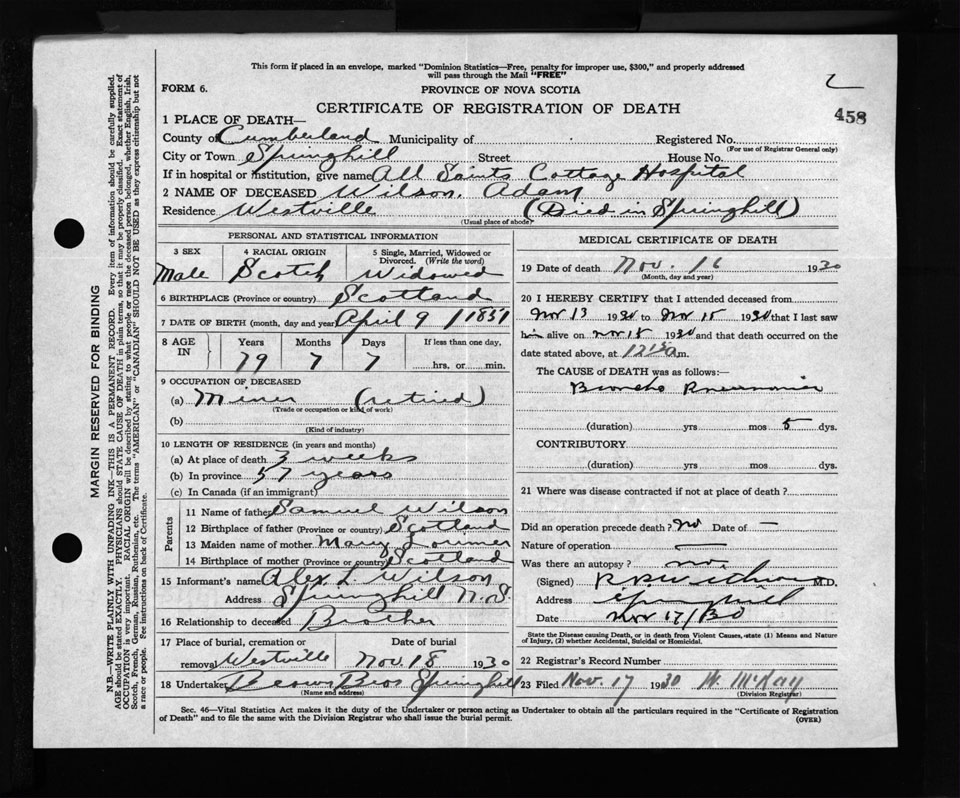 This form if placed in an envelope, marked "Dominion Statistics—Free, penalty for improper use, $300," and properly addressed
will pass through the Mail "FREE"
FORM 6.
PROVINCE OF NOVA SCOTIA
458
CERTIFICATE OF REGISTRATION OF DEATH
1 PLACE OF DEATH—
County of Cumberland Municipality of Registered No.
(For use of Registrar General only)
City or Town Springhill Street House No.
If in hospital or institution, give name All Saints Cottage Hospital
2 NAME OF DECEASED Wilson, Adam
Residence Westville (Died in Springhill)
(Usual place of abode)
PERSONAL AND STATISTICAL INFORMATION
3 SEX 4 RACIAL ORIGIN 5 Single, Married, Widowed or Divorced. (Write the word)
Male Scotch Widowed
6 BIRTHPLACE (Province or country) Scotland
7 DATE OF BIRTH (month, day and year) April 9 / 1851
8 AGE IN Years Months Days If less than one day,
79 7 7 hrs. or min.
9 OCCUPATION OF DECEASED
(a) Miner (retired)
(Trade or occupation or kind of work)
(b)
(Kind of industry)
10 LENGTH OF RESIDENCE (in years and months)
(a) At place of death 3 weeks
(b) In province 57 years
(c) In Canada (if an immigrant)
Parents
11 Name of father Samuel Wilson
12 Birthplace of father (Province or country) Scotland
13 Maiden name of mother Mary Lorimer
14 Birthplace of mother (Province or country) Scotland
15 Informant's name Alex. L. Wilson
Address Springhill N.S.
16 Relationship to deceased Brother
17 Place of burial, cremation or removal Westville Date of burial Nov. 18 1930
18 Undertaker Brown Bros Springhill
(Name and address)
MEDICAL CERTIFICATE OF DEATH
19 Date of death Nov. 16 1930
(Month, day and year)
20 I HEREBY CERTIFY that I attended deceased from
Nov 13 1930 to Nov 15 1930 that I last saw
him alive on Nov 15 1930 and that death occurred on the
date stated above, at m.
The CAUSE of DEATH was as follows:—
Broncho Pneumonia
(duration) yrs mos 5 dys.
CONTRIBUTORY
(duration) yrs mos dys.
21 Where was disease contracted if not at place of death?
Did an operation precede death? No Date of —
Nature of operation —
Was there an autopsy? no.
(Signed) M.D.
Address Springhill
Date Nov 17/30
State the Disease causing Death, or in death from Violent Causes, state (1) Means and Nature
of Injury, (2) whether Accidental, Suicidal or Homicidal.
22 Registrar's Record Number
23 Filed Nov. 17 1930 W. McKay
(Division Registrar)
Sec. 46—Vital Statistics Act makes it the duty of the Undertaker or person acting as Undertaker to obtain all the particulars required in the "Certificate of Registration
of Death" and to file the same with the Division Registrar who shall issue the burial permit.
(OVER)
MARGIN RESERVED FOR BINDING
N.B.—WRITE PLAINLY WITH UNFADING INK—THIS IS A PERMANENT RECORD. Every item of information should be carefully supplied.
AGE should be stated EXACTLY. PHYSICIANS should STATE CAUSE OF DEATH in plain terms, so that it may be properly classified. Exact statement of
OCCUPATION is very important. RACIAL ORIGIN will be described by stating to what people or race the deceased person belonged, whether English, Irish,
Scotch, French, German, Russian, Ruthenian, etc. The terms "AMERICAN" or "CANADIAN" SHOULD NOT BE USED as they express citizenship but not
a race or people. See instructions on back of Certificate.